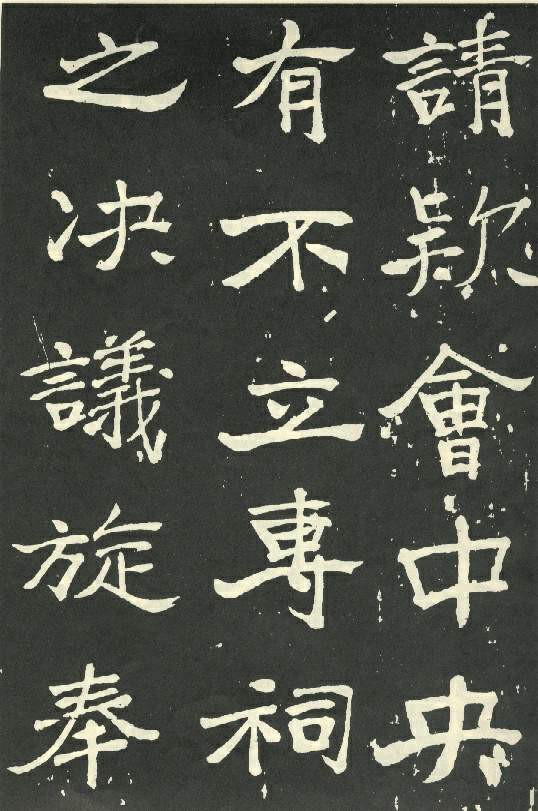 請款會中央
有不立專祠
之决議旋奉